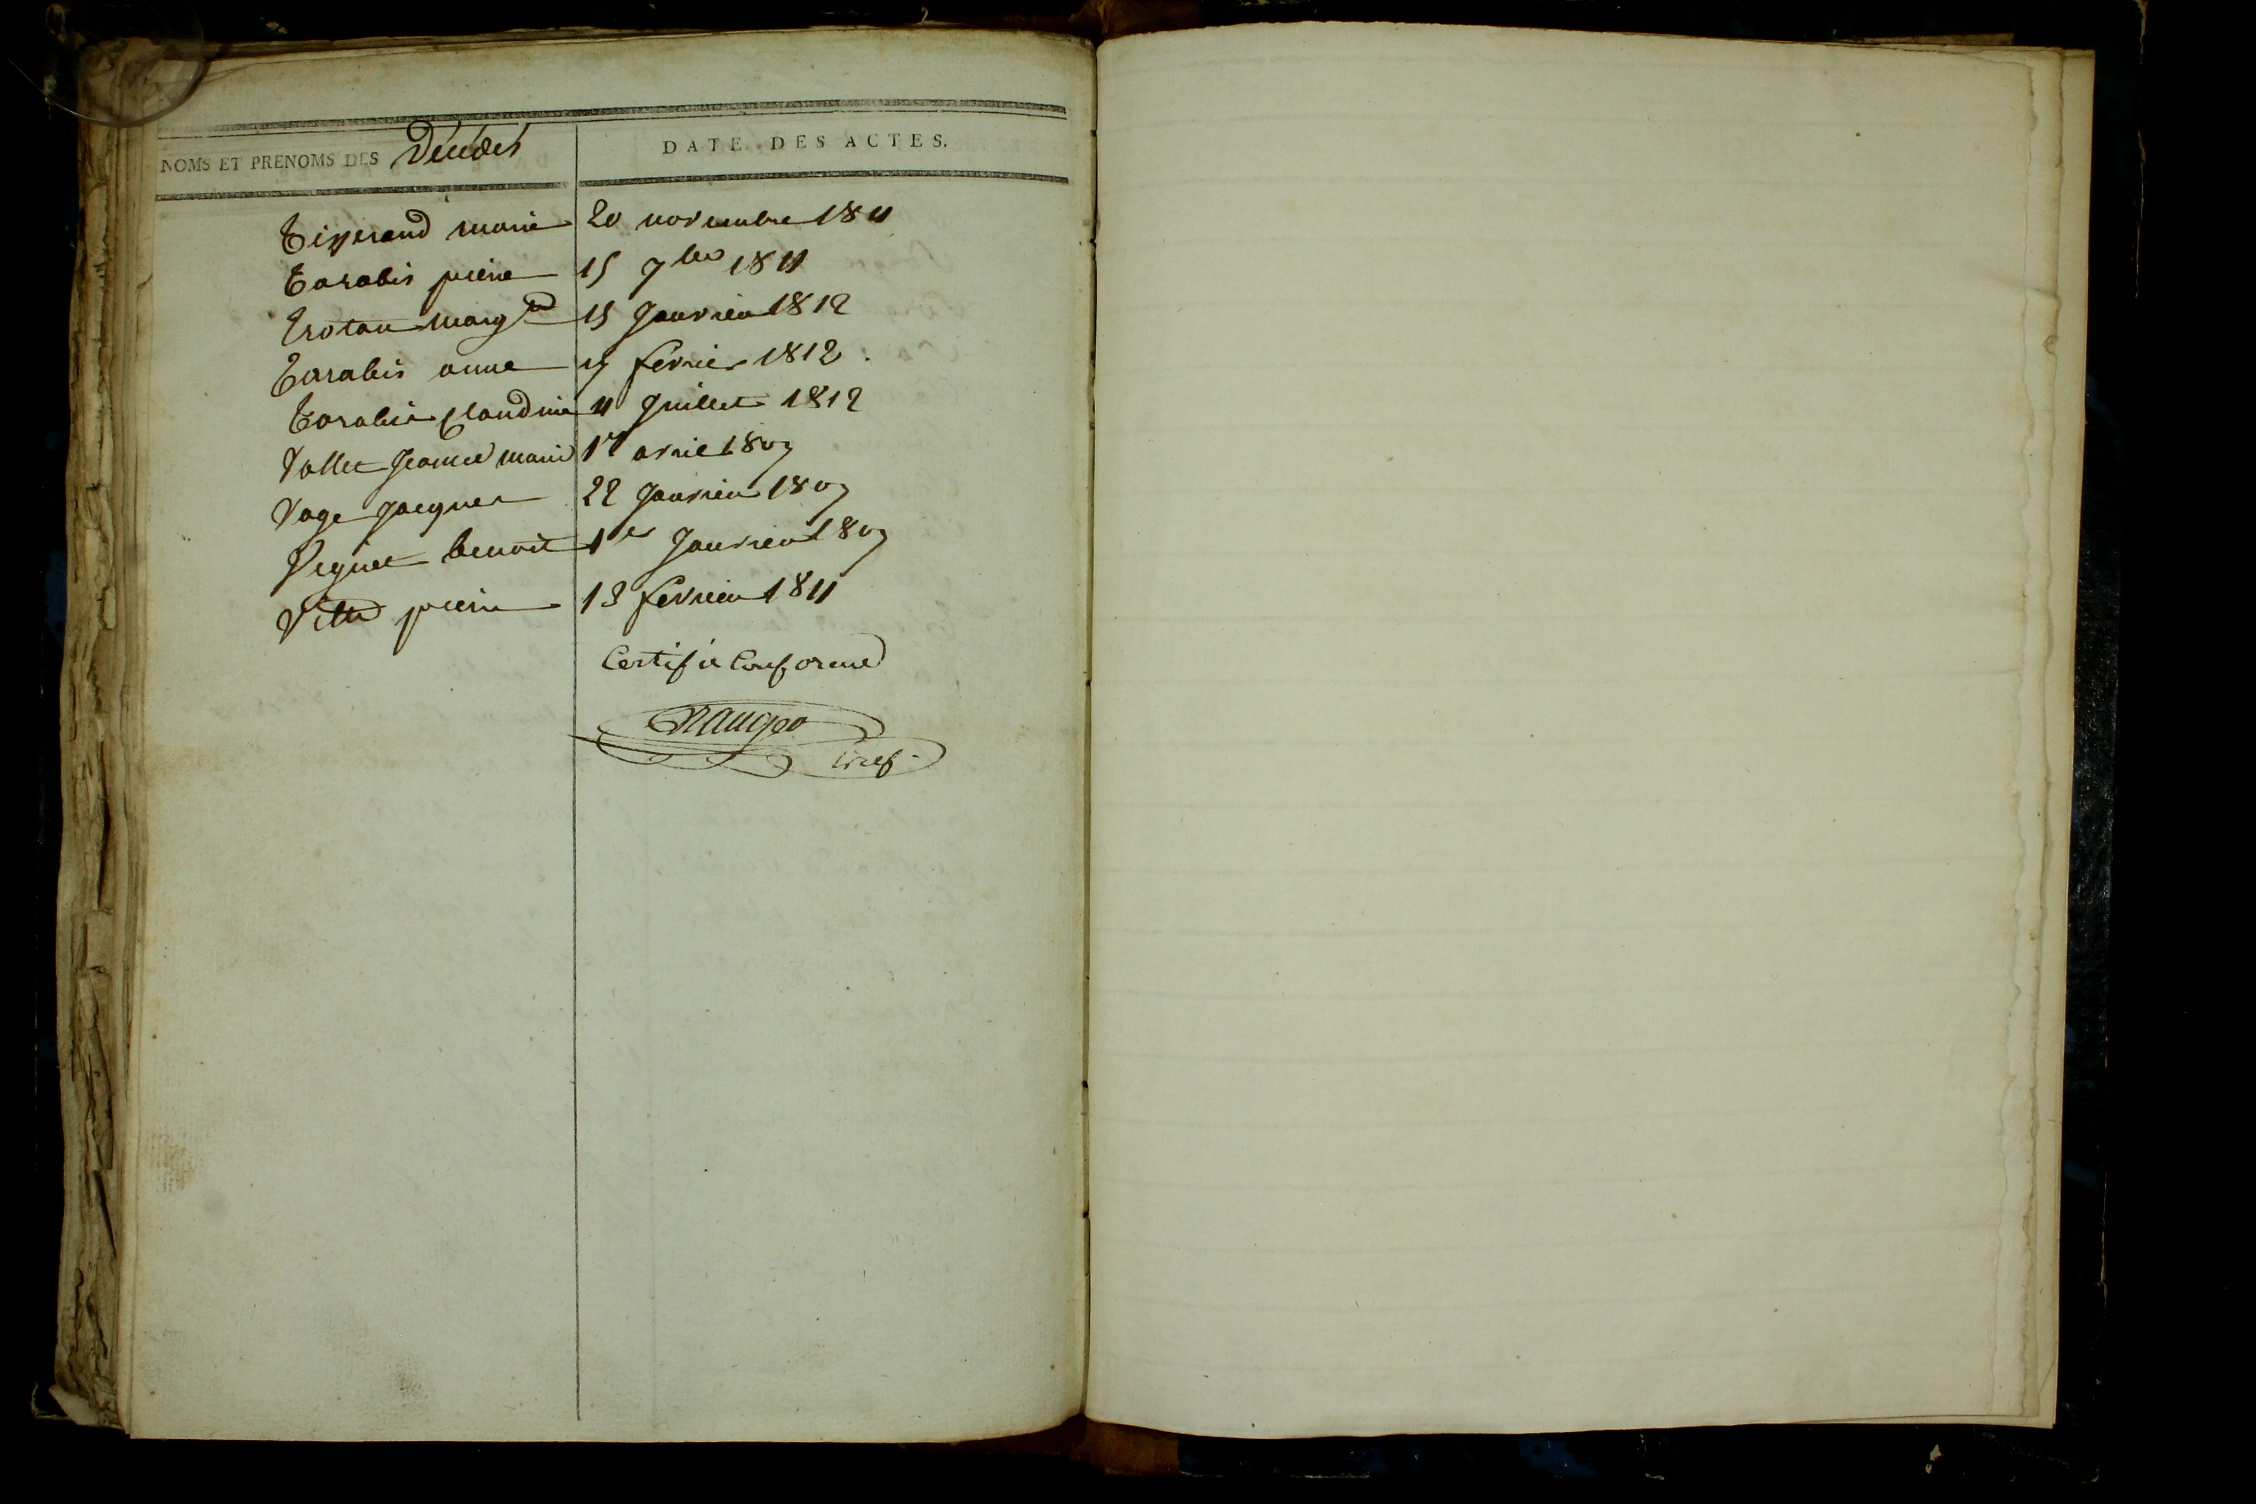 NOMS ET PRENOMS DES Décédés DATE DES ACTES.
Tisserand marie 20 novembre 1811
Tarabis pierre 15 7bre 1811
Trotau margte 15 Janvier 1812
Tarabis anne 19 fevrier 1812.
Tarabis Claudine 11 Juillet 1812
Vallet Jeanne marie 17 avril 1809
Vage Jacques 22 Janvier 1809
Viguet benoit 1er Janvier 1809
Vitte pierre 13 fevrier 1811
Certifié Conforme
Greff